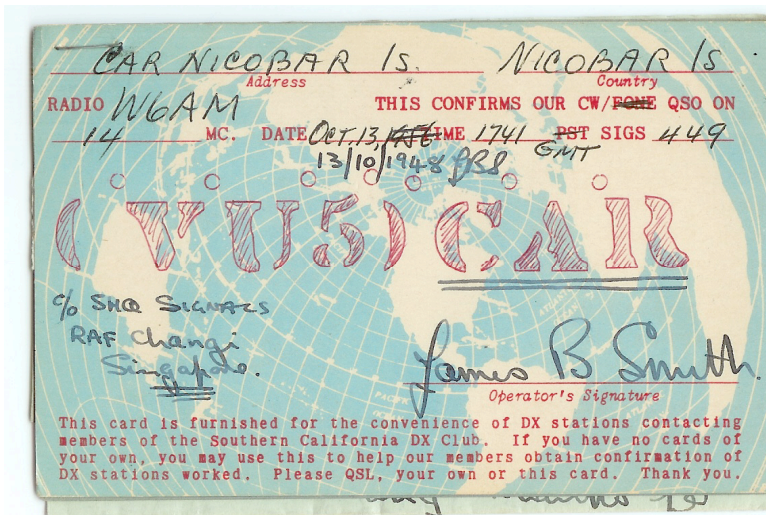 CAR NICOBAR Is. NICOBAR Is
Address Country
RADIO W6AM THIS CONFIRMS OUR CW/FONE QSO ON
14 MC. DATE OCT, 13, TIME 1741 PST SIGS 449
13/10/1948 JBS GMT
(VU5) CAR
c/o SHQ SIGNALS
RAF Changi
Singapore.
James B Smith.
Operator's Signature
This card is furnished for the convenience of DX stations contacting
members of the Southern California DX Club. If you have no cards of
your own, you may use this to help our members obtain confirmation of
DX stations worked. Please QSL, your own or this card. Thank you.